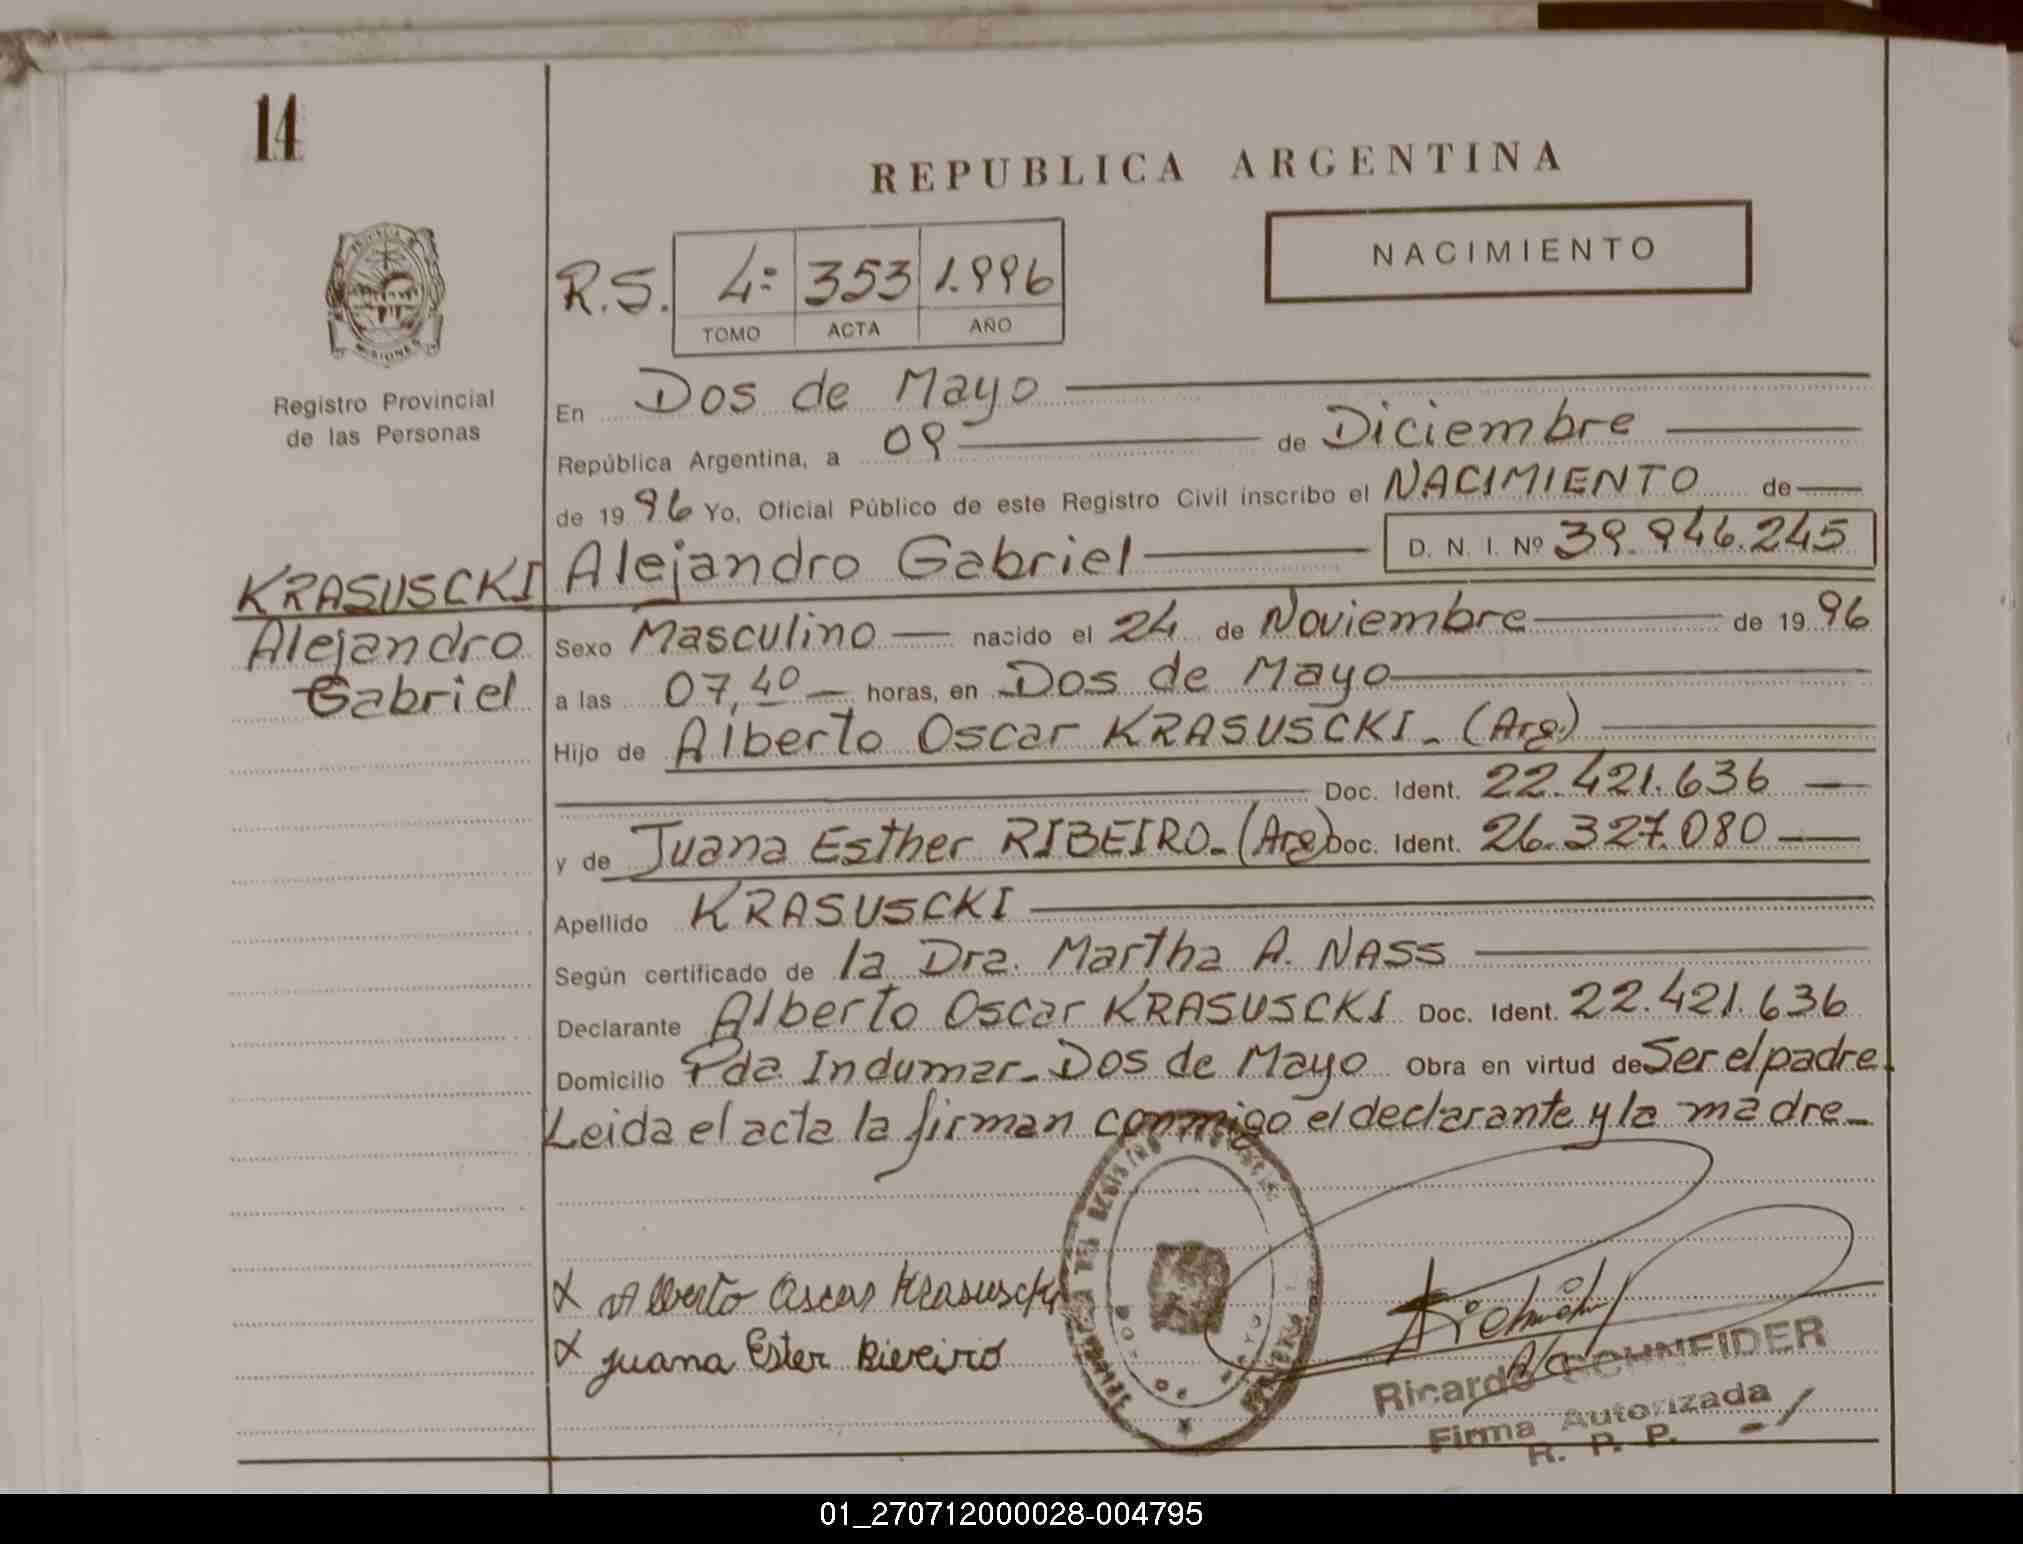 14
REPUBLICA ARGENTINA
NACIMIENTO
R.S. 4= 353 1.996
TOMO ACTA AÑO
MISIONES
Registro Provincial
de las Personas
En Dos de Mayo
República Argentina, a 09 de Diciembre
de 1996 Yo, Oficial Público de este Registro Civil inscribo el NACIMIENTO de
KRASUSCKI Alejandro Gabriel D. N. I. Nº 39.946.245
Alejandro Sexo Masculino nacido el 24 de Noviembre de 1996
Gabriel a las 07,40 horas, en Dos de Mayo
Hijo de Alberto Oscar KRASUSCKI - (Arg)
Doc. Ident. 22.421.636
y de Juana Esther RIBEIRO - (Arg) Doc. Ident. 26.327.080
Apellido KRASUSCKI
Según certificado de la Dra. Martha A. NASS
Declarante Alberto Oscar KRASUSCKI Doc. Ident. 22.421.636
Domicilio Pda Indumar - Dos de Mayo Obra en virtud de Ser el padre.
Leida el acta la firman conmigo el declarante y la madre -
X Alberto Oscar Krasuscki
X Juana Ester Riveiro
Ricardo SCHNEIDER
Firma Autorizada
R. P. P.
01_270712000028-004795